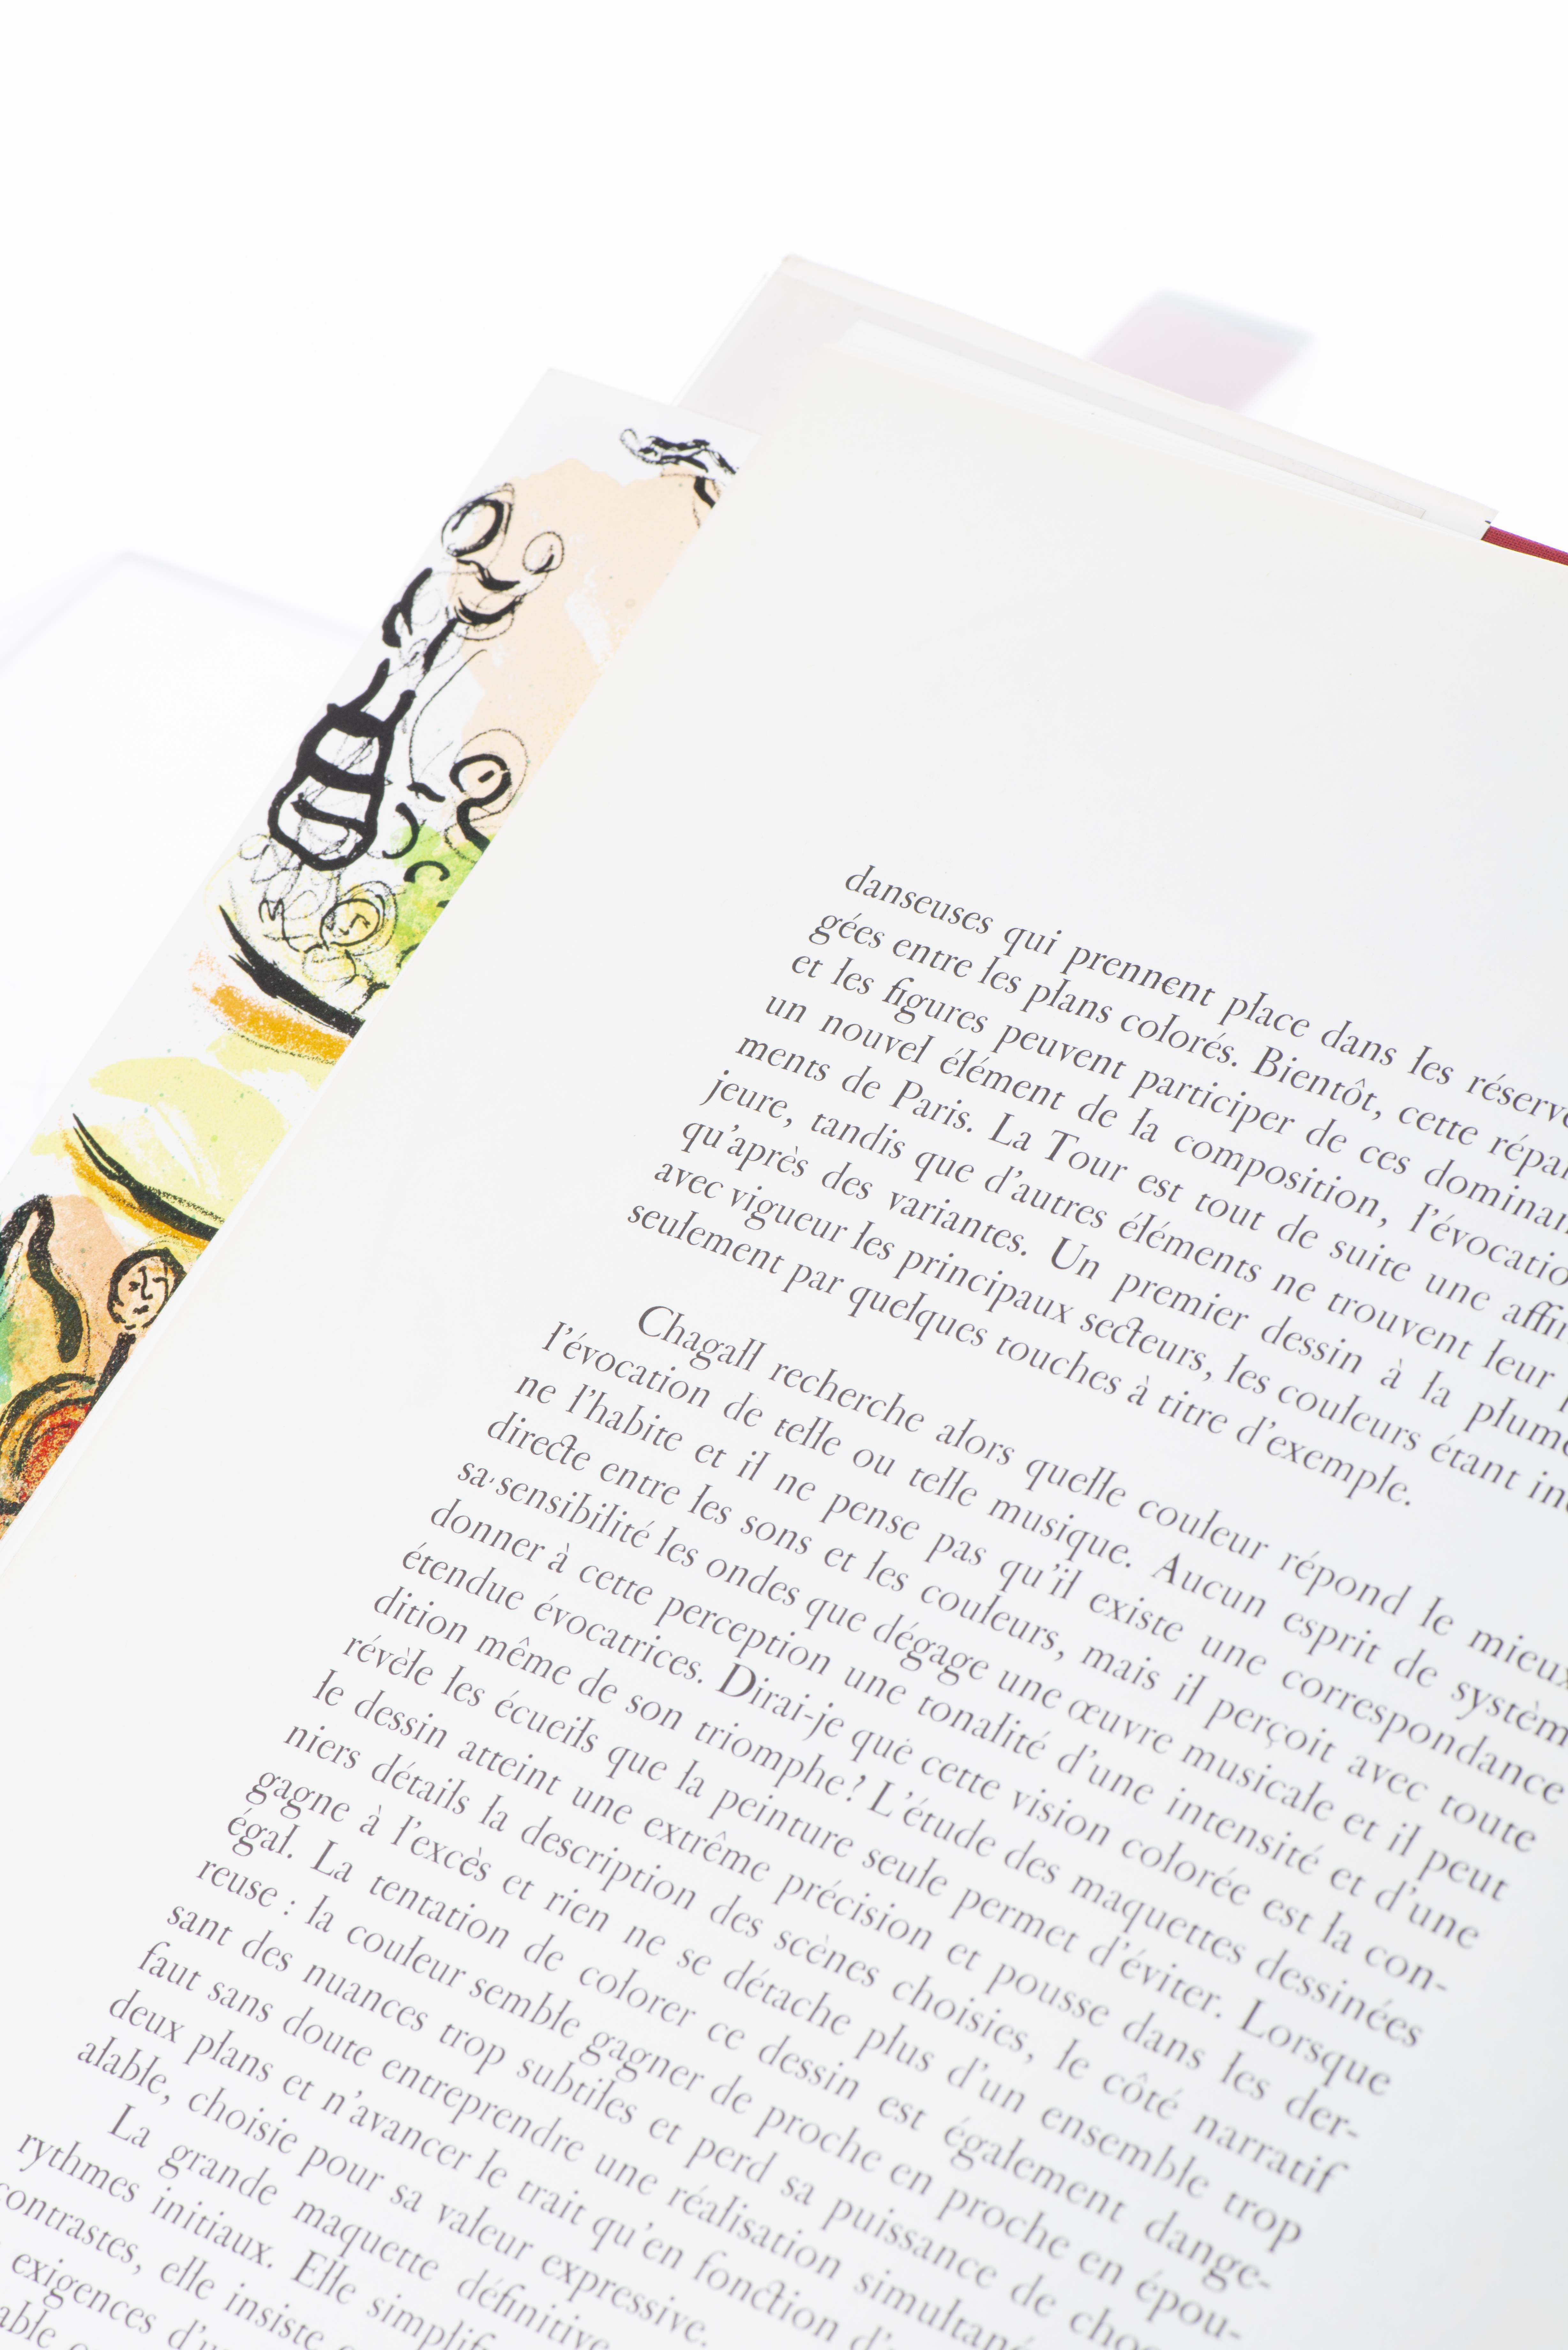 danseuses qui prennent place dans les
gées entre les plans colorés. Bientôt, cette
et les figures peuvent participer de ces
un nouvel élément de la composition,
ments de Paris. La Tour est tout de suite une
jeure, tandis que d'autres éléments ne trouvent leur
qu'après des variantes. Un premier dessin à la
avec vigueur les principaux secteurs, les couleurs étant
seulement par quelques touches à titre d'exemple.
Chagall recherche alors quelle couleur répond le mieux
l'évocation de telle ou telle musique. Aucun esprit de
ne l'habite et il ne pense pas qu'il existe une correspondance
directe entre les sons et les couleurs, mais il perçoit avec toute
sa sensibilité les ondes que dégage une œuvre musicale et il peut
donner à cette perception une tonalité d'une intensité et d'une
étendue évocatrices. Dirai-je que cette vision colorée est la con-
dition même de son triomphe? L'étude des maquettes dessinées
révèle les écueils que la peinture seule permet d'éviter. Lorsque
le dessin atteint une extrême précision et pousse dans les der-
niers détails la description des scènes choisies, le côté narratif
gagne à l'excès et rien ne se détache plus d'un ensemble trop
égal. La tentation de colorer ce dessin est également dange-
reuse : la couleur semble gagner de proche en proche en épou-
sant des nuances trop subtiles et perd sa puissance de
faut sans doute entreprendre une réalisation
deux plans et n'avancer le trait qu'en fonction
alable, choisie pour sa valeur expressive.
La grande maquette définitive
rythmes initiaux. Elle
contrastes, elle insiste
exigences